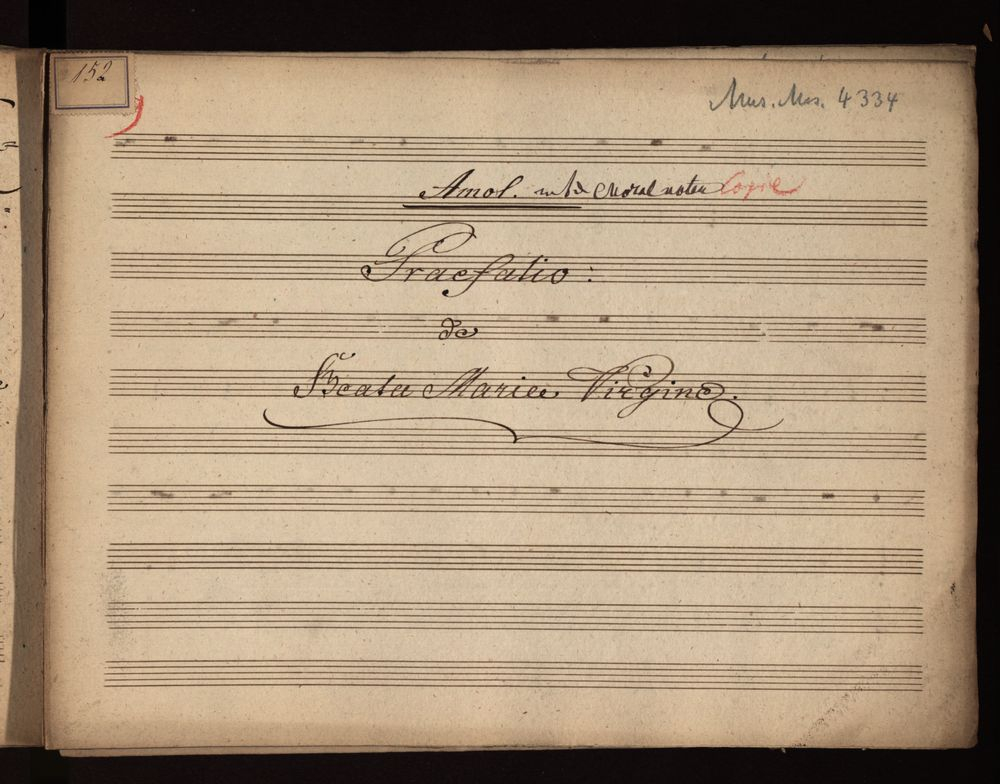 152
Mus. Mss. 4334
Amol. Choral noten Copie
Praefatio:
de
Beata Mariae Virgine.